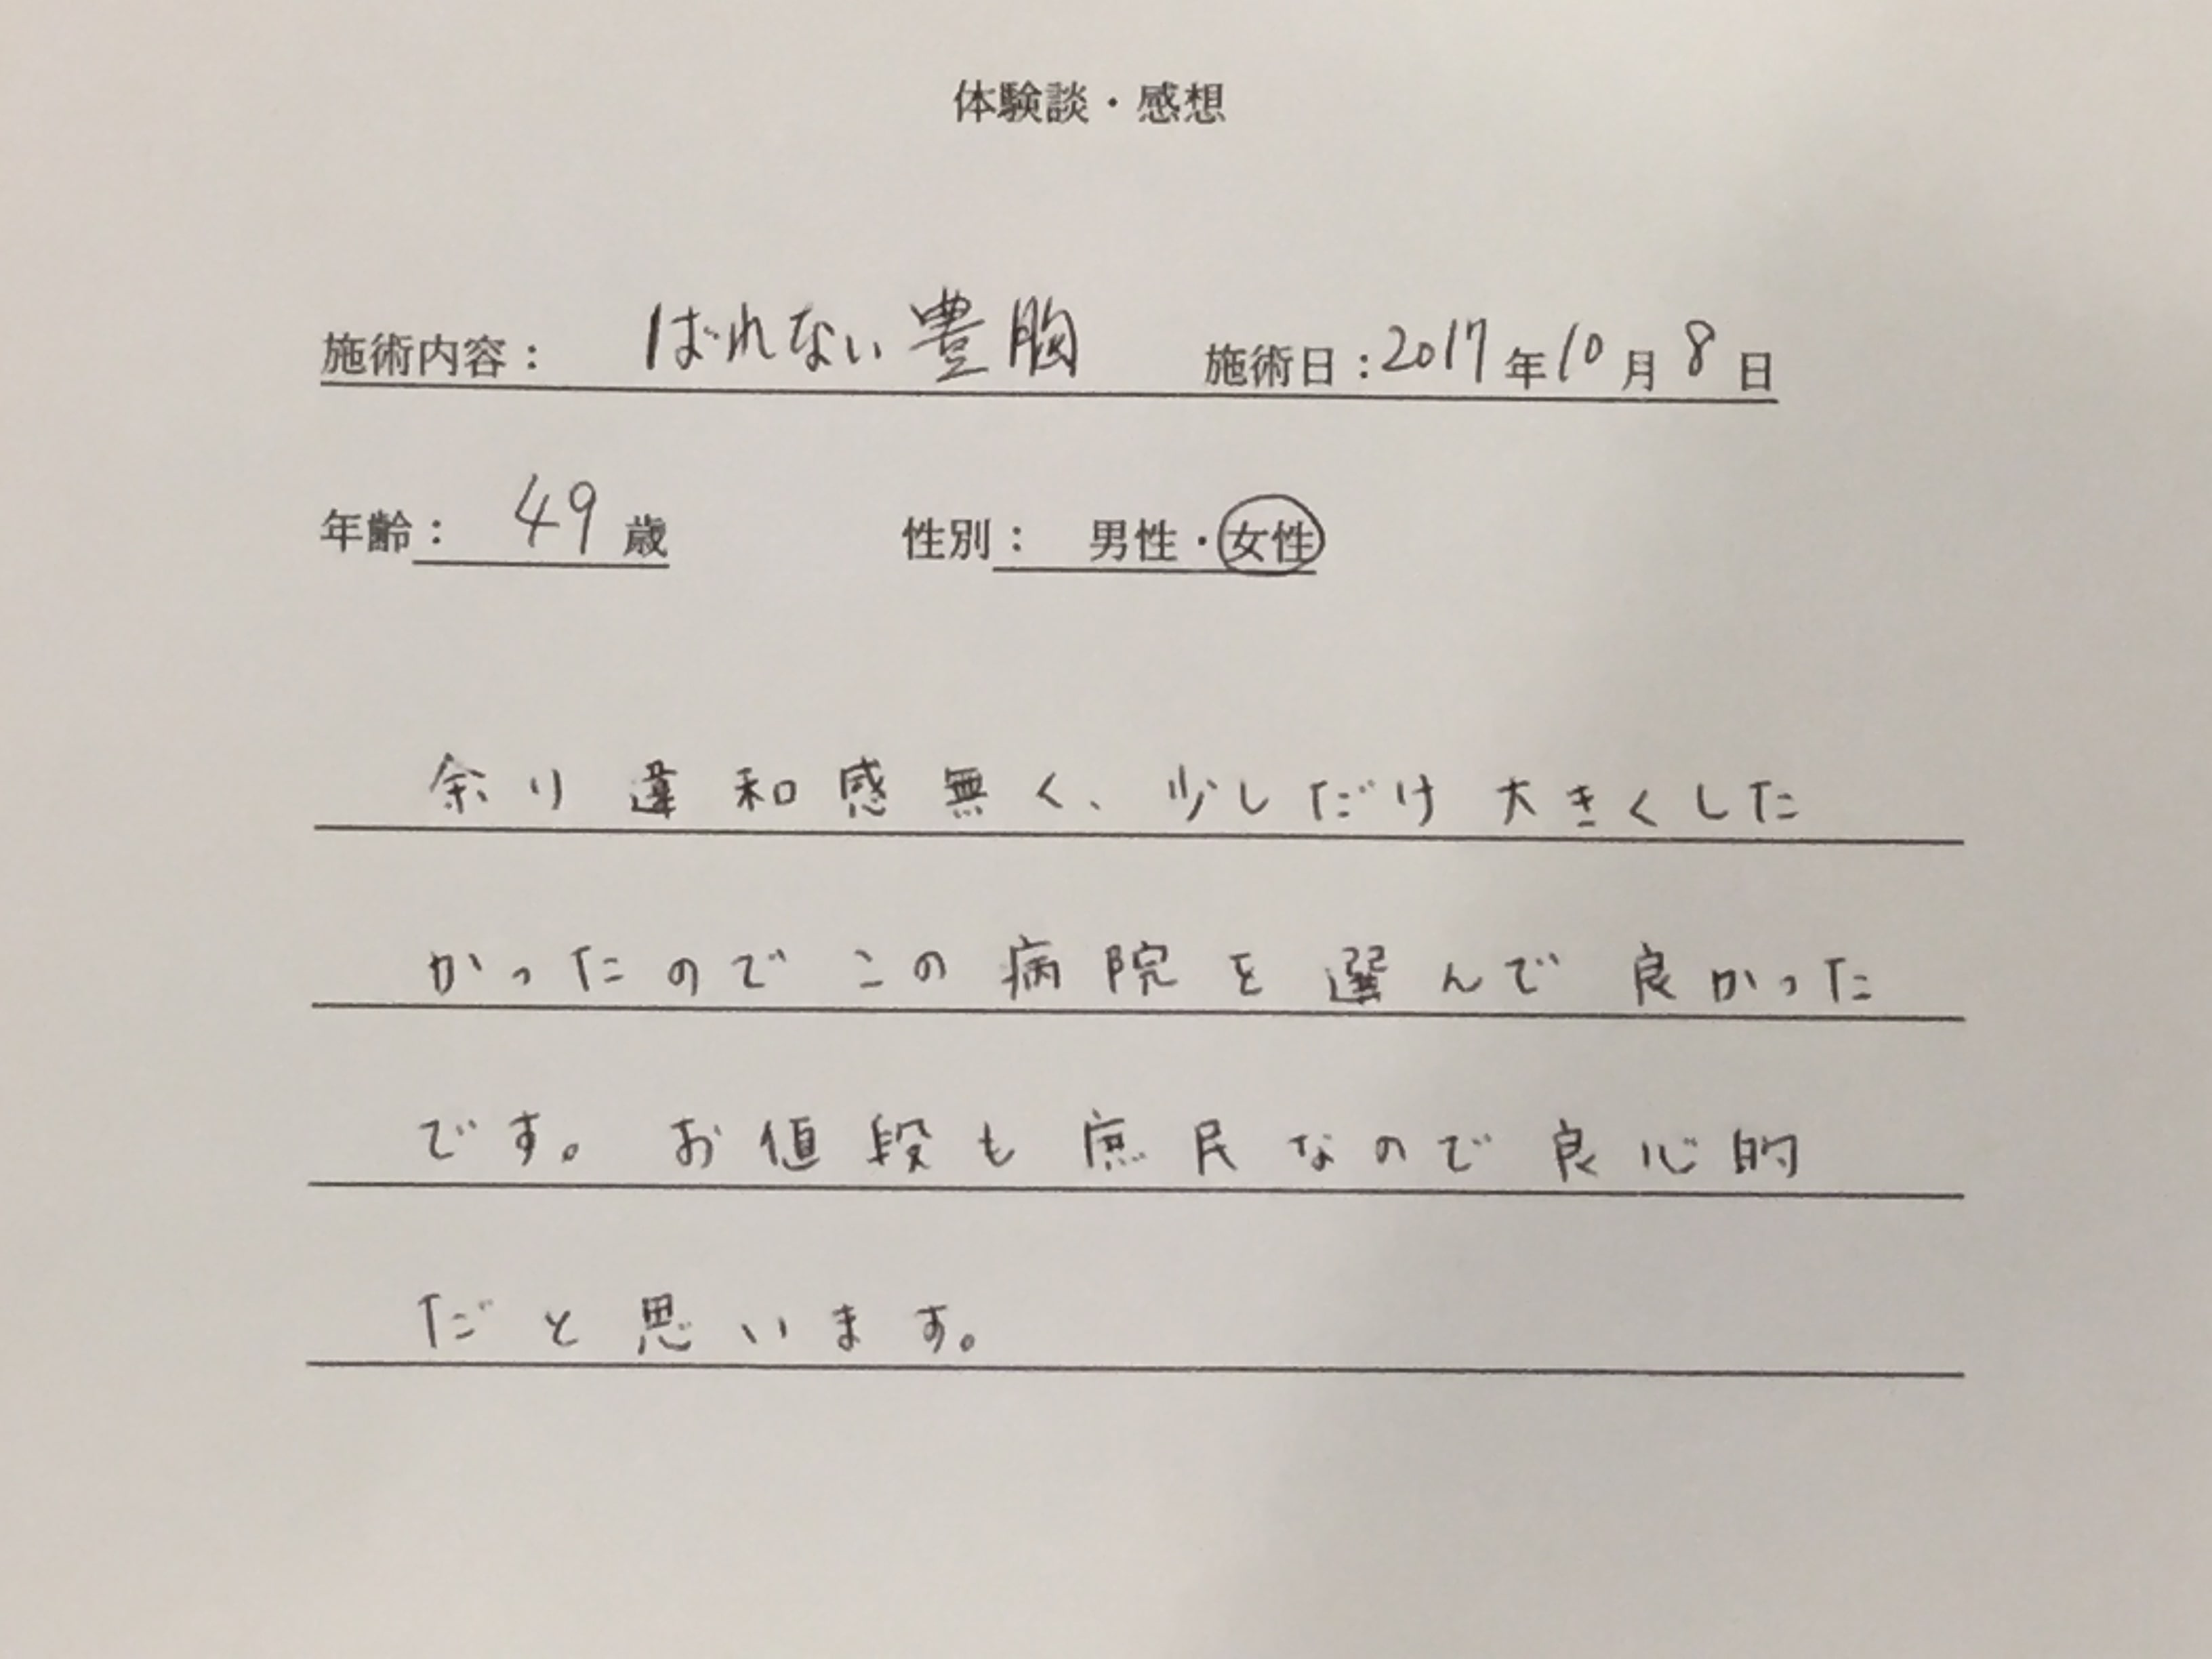 体験談・感想
施術内容： ばれない豊胸 施術日：2017年10月8日
年齢： 49歳 性別： 男性・女性
余り違和感無く、少しだけ大きくした
かったのでこの病院を選んで良かった
です。お値段も庶民なので良心的
だと思います。